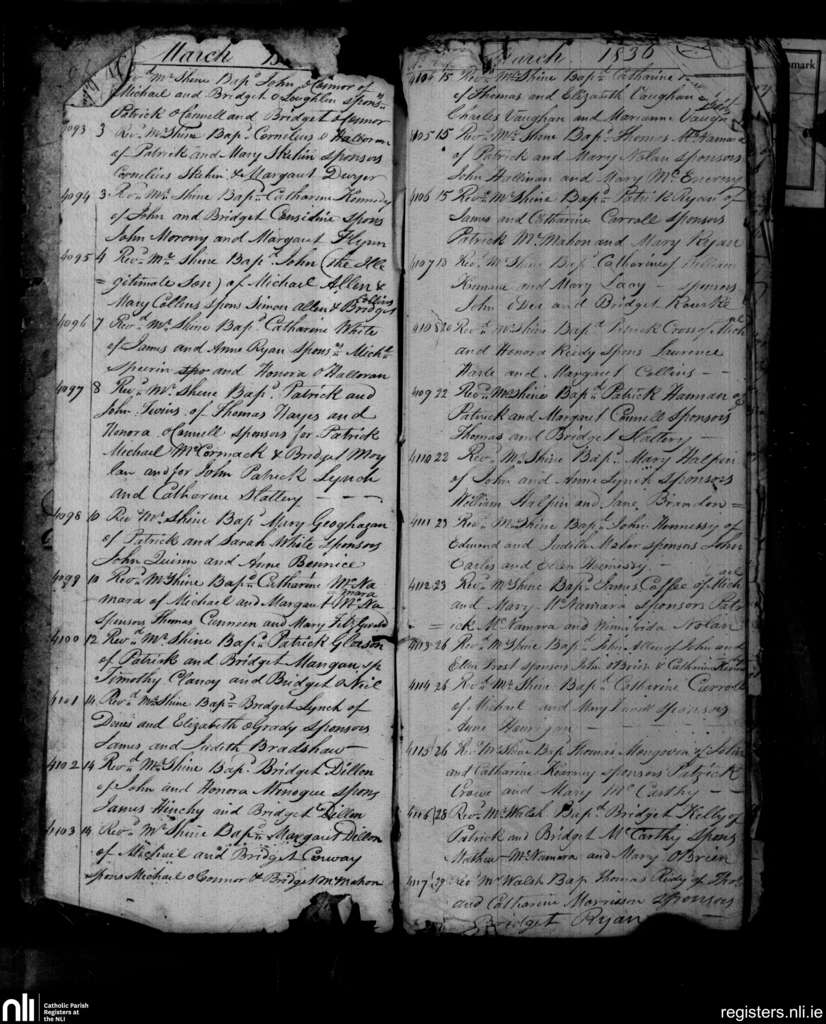 March
Revd Mr Shine Bapd John O Connor of
Michael and Bridget O Loughlin spons
Patrick O Connell and Bridget
4093 3 Revd Mr Shine Bapd Cornelius O Halloran
of Patrick and Mary Skehin sponsors
Cornelius Skehin & Margaut Dwyer
4094 3 Revd Mr Shine Bapd Catharine Kennedy
of John and Bridget Considine spons
John Morony and Margaut Flynn
4095 4 Revd Mr Shine Bapd John (the Ille
= gitimate Son) of Michael Allen &
Mary Collins spons Simon Allen & Bridget
Collins
4096 7 Revd Mr Shine Bapd Catharine White
of James and Anne Ryan sponsrs Michl
Speerin spo and Honora O Halloran
4097 8 Revd Mr Shine Bapd Patrick and
John Twins of Thomas Hayes and
Honora O Connell sponsors for Patrick
Michael McCormack & Bridget Moy
lan and for John Patrick Lynch
and Catherine Slattery
4098 10 Revd Mr Shine Bapd Mary Geoghagan
of Patrick and Sarah White sponsors
John Quinn and Anne
4099 10 Revd Mr Shine Bapd Catharine McNa
mara
mara of Michael and Margaut McNa
Sponsors Thomas and Mary Fitz Gerald
4100 12 Revd Mr Shine Bapd Patrick Gleeson
of Patrick and Bridget Mangan sp
Timothy Clancy and Bridget O Neil
4101 14 Revd Mr Shine Bapd Bridget Lynch of
Denis and Elizabeth O Grady sponsors
James and Judith Bradshaw
4102 14 Revd Mr Shine Bapd Bridget Dillon
of John and Honora Minogue spons
James Hinchy and Bridget Dillon
4103 14 Revd Mr Shine Bapd Margaut Dillon
of Michael and Bridget Conway
spons Michael O Connor & Bridget McMahon
March 1836
15 Revd Mr Shine Bapd Catharine
of Thomas and Elizabeth Vaughan
Charles Vaughan and Marianne Vaughn
4105 15 Revd Mr Shine Bapd Thomas McNamara
of Patrick and Mary Nolan sponsors
John Hallinan and Mary McEnerny
4106 15 Revd Mr Shine Bapd Patrick Ryan of
James and Catharine Carroll sponsors
Patrick McMahon and Mary Ryan
4107 13 Revd Mr Shine Bapd Catharine of William
and Mary Lacy - sponsors
John and Bridget Rourke
4108 20 Revd Mr Shine Bapd Patrick Cross of Mich
and Honora Reidy spons Laurence
and Margaut Collins
4109 22 Revd Mr Shine Bapd Patrick Hannan of
Patrick and Margaut Connell sponsors
Thomas and Bridget Slattery
4110 22 Revd Mr Shine Bapd Mary Halpin
of John and Anne Lynch sponsors
William Halpin and Jane Brandon =
4111 23 Revd Mr Shine Bapd John Hennessy of
Edmund and Judith Maher sponsors John
and Ellen Hennessy
4112 23 Revd Mr Shine Bapd James Coffee of Mich
ael
and Mary McNamara sponsors Patr
= ick McNamara and Nolan
4113 26 Revd Mr Shine Bapd John Allen of John and
Ellen Frost sponsors John O Brien & Catharine
4114 26 Revd Mr Shine Bapd Catherine Carroll
of Michael and Mary sponsors
Anne Hourigan
4115 26 Revd Mr Shine Bap Thomas Mongovan of John
and Catharine Kearney sponsors Patrick
Crowe and Mary McCarthy
4116 28 Revd Mr Walsh Bapd Bridget Kelly of
Patrick and Bridget McCarthy spons
Mathew McNamara and Mary O Brien
4117 29 Revd Mr Walsh Bap Thomas Reidy of Thos
and Catharine Morrisson sponsors
Bridget Ryan
mark
nli
Catholic Parish
Registers at
the NLI
registers.nli.ie